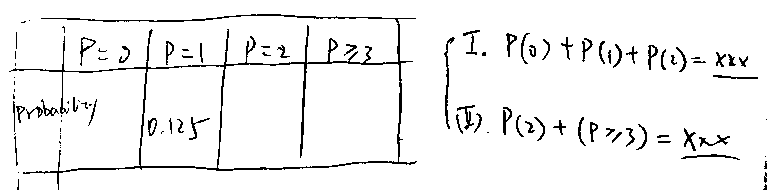 P=0 P=1 P=2 P≥3
Probability 0.125
I. P(0)+P(1)+P(2)= xxx
(II). P(2)+(P≥3) = xxx